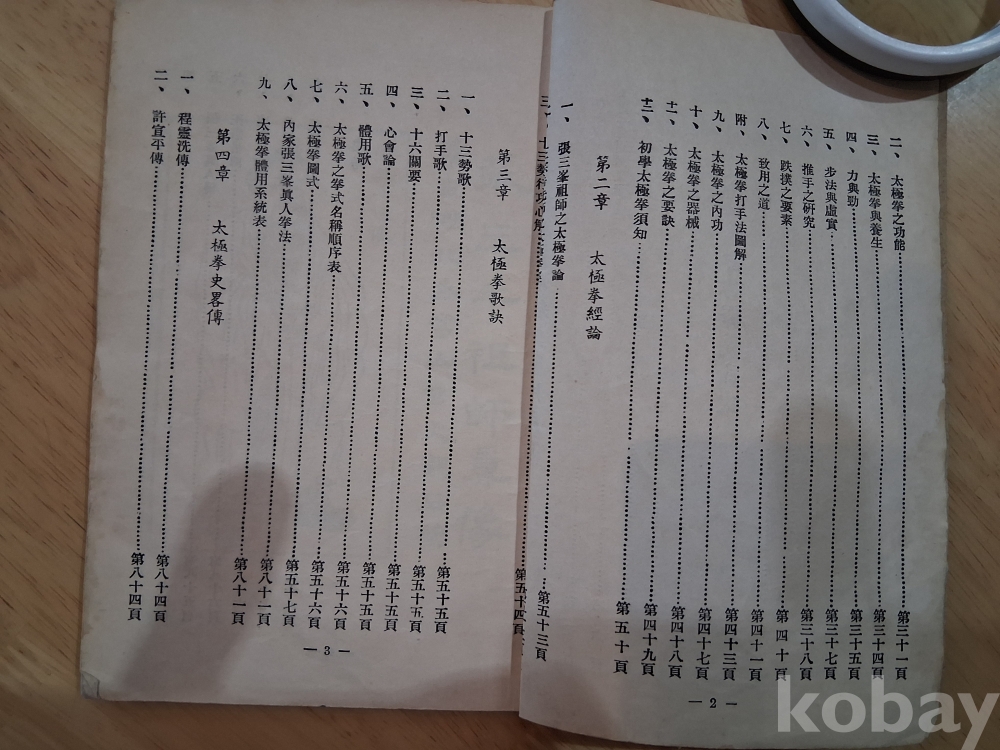 二、太極拳之功能……第三十一頁
三、太極拳與養生……第三十四頁
四、力與勁……第三十五頁
五、步法與虛實……第三十七頁
六、推手之研究……第三十八頁
七、跌撲之要素……第四十頁
八、致用之道……第四十一頁
附、太極拳打手法圖解……第四十三頁
九、太極拳之內功……第四十七頁
十、太極拳之器械……第四十七頁
十一、太極拳之要訣……第四十八頁
十二、初學太極拳須知……第四十九頁
第五十頁
第二章 太極拳經論
一、張三峯祖師之太極拳論……第五十三頁
三、十三勢行功心解……第五十四頁
— 2 —
第三章 太極拳歌訣
一、十三勢歌……第五十五頁
二、打手歌……第五十五頁
三、十六關要……第五十五頁
四、心會論……第五十五頁
五、體用歌……第五十六頁
六、太極拳之拳式名稱順序表……第五十六頁
七、太極拳圖式……第五十七頁
八、內家張三峯眞人拳法……第八十一頁
九、太極拳體用系統表……第八十一頁
第四章 太極拳史畧傳
一、程靈洗傳……第八十四頁
二、許宣平傳……第八十四頁
— 3 —
kobay